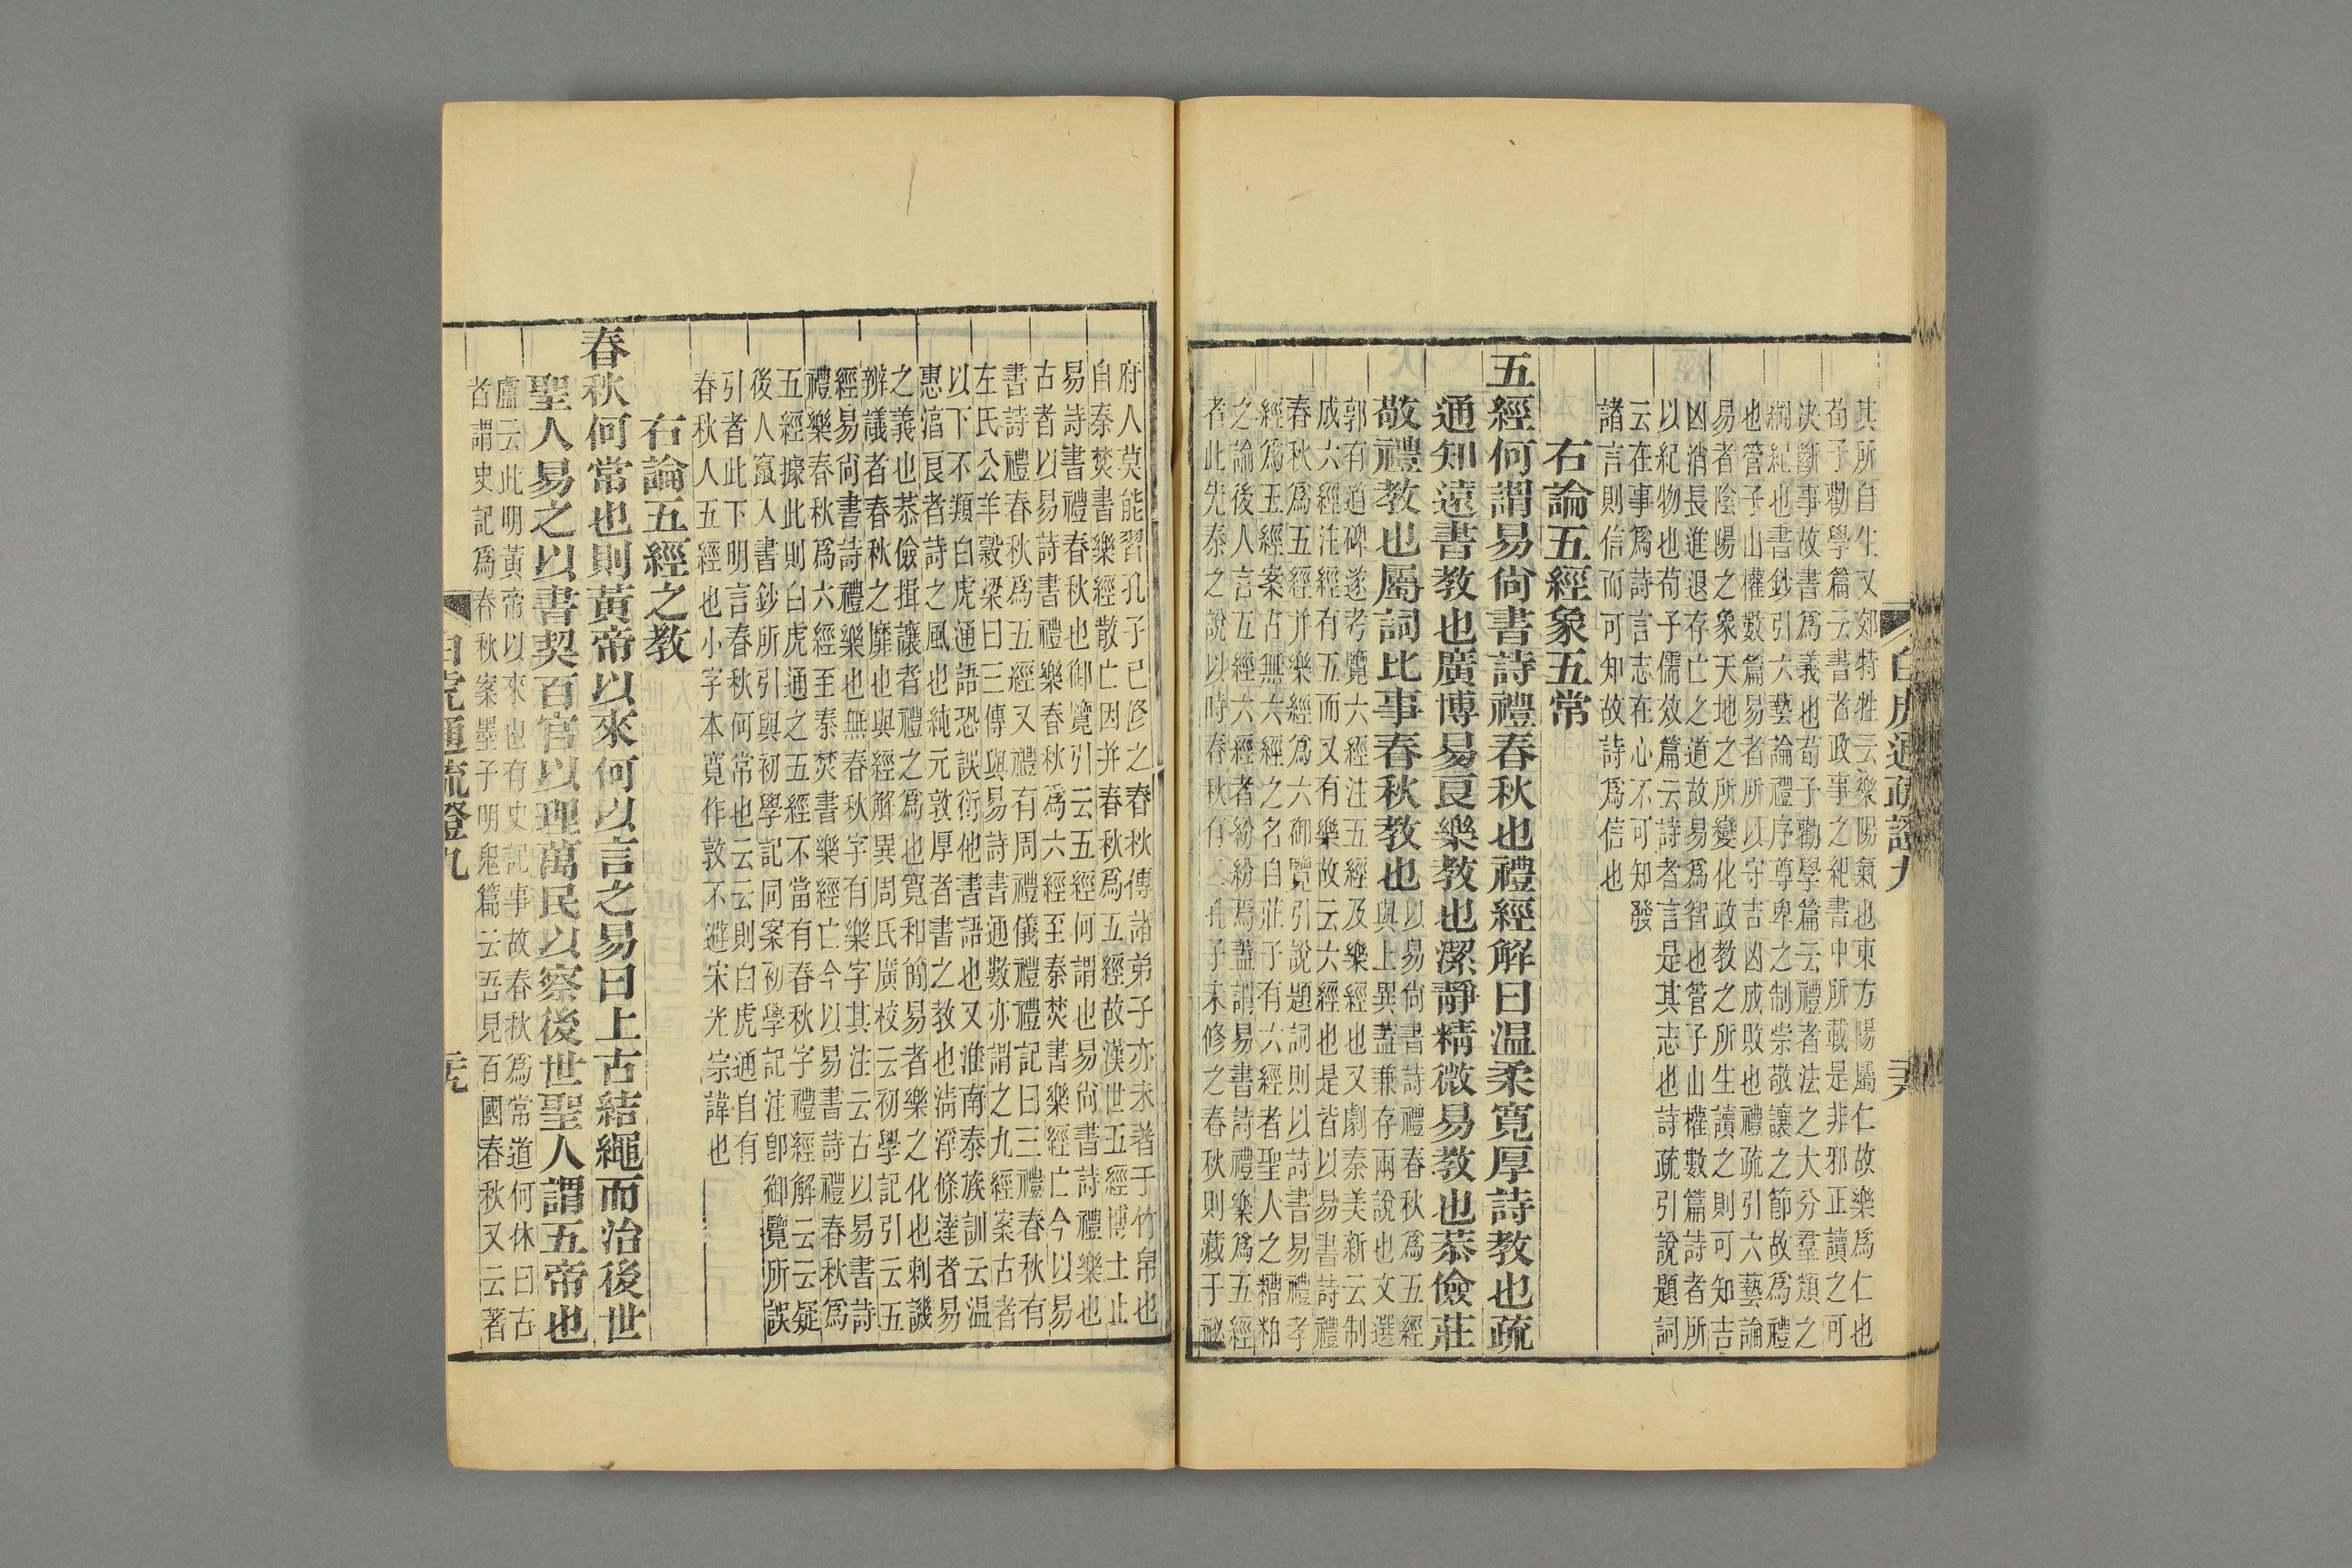 白虎通疏證九
其所自生又郊特牲云樂陽氣也東方陽屬仁故樂爲仁也
荀子勸學篇云書者政事之紀書中所載是非邪正讀之可
決斷事故書爲義也荀子勸學篇云禮者法之大分羣類之
綱紀也書鈔引六藝論禮序尊卑之制崇敬讓之節故爲禮
也管子山權數篇易者所以守吉凶成敗也禮疏引六藝論
易者陰陽之象天地之所變化政教之所生讀之則可知吉
凶消長進退存亡之道故易爲智也管子山權數篇詩者所
以紀物也荀子儒效篇云詩者言是其志也詩疏引說題詞
云在事爲詩言志在心不可知發
諸言則信而可知故詩爲信也
右論五經象五常
五經何謂易尙書詩禮春秋也禮經解曰温柔寛厚詩教也疏
通知遠書教也廣博易良樂教也潔靜精微易教也恭儉莊
敬禮教也屬詞比事春秋教也
以易尙書詩禮春秋爲五經
與上異蓋兼存兩說也文選
郭有道碑遂考覽六經注五經及樂經也又劇秦美新云制
成六經注經有五而又有樂故云六經也是皆以易書詩禮
春秋爲五經并樂經爲六御覽引說題詞則以詩書易禮孝
經爲五經案古無六經之名自莊子有六經者聖人之糟粕
之論後人言五經六經者紛紛焉蓋謂易書詩禮樂爲五經
者此先秦之說以時春秋有二孔子未修之春秋則藏于祕
府人莫能習孔子已修之春秋傳諸弟子亦未著于竹帛也
自秦焚書樂經散亡因并春秋爲五經故漢世五經博士止
易詩書禮春秋也御覽引云五經何謂也易尙書詩禮樂也
古者以易詩書禮樂春秋爲六經至秦焚書樂經亡今以易
書詩禮春秋爲五經又禮有周禮儀禮禮記曰三禮春秋有
左氏公羊穀梁曰三傳與易詩書通數亦謂之九經案古者
以下不類白虎通語恐誤衍他書語也又淮南泰族訓云温
惠湻良者詩之風也純元敦厚者書之教也淸浮條達者易
之義也恭儉揖讓者禮之爲也寛和簡易者樂之化也刺譏
辨議者春秋之靡也與經解異周氏廣校云初學記引云五
經易尙書詩禮樂也無春秋字有樂字其注云古以易書詩
禮樂春秋爲六經至秦焚書樂經亡今以易書詩禮春秋爲
五經據此則白虎通之五經不當有春秋字禮經解云云疑
後人竄入書鈔所引與初學記同案初學記注卽御覽所誤
引者此下明言春秋何常也云云則白虎通自有
春秋人五經也小字本寛作敦不避宋光宗諱也
右論五經之教
春秋何常也則黃帝以來何以言之易曰上古結繩而治後世
聖人易之以書契百官以理萬民以察後世聖人謂五帝也
盧云此明黃帝以來也有史記事故春秋爲常道何休曰古
首謂史記爲春秋案墨子明鬼篇云吾見百國春秋又云著
白虎通疏證九